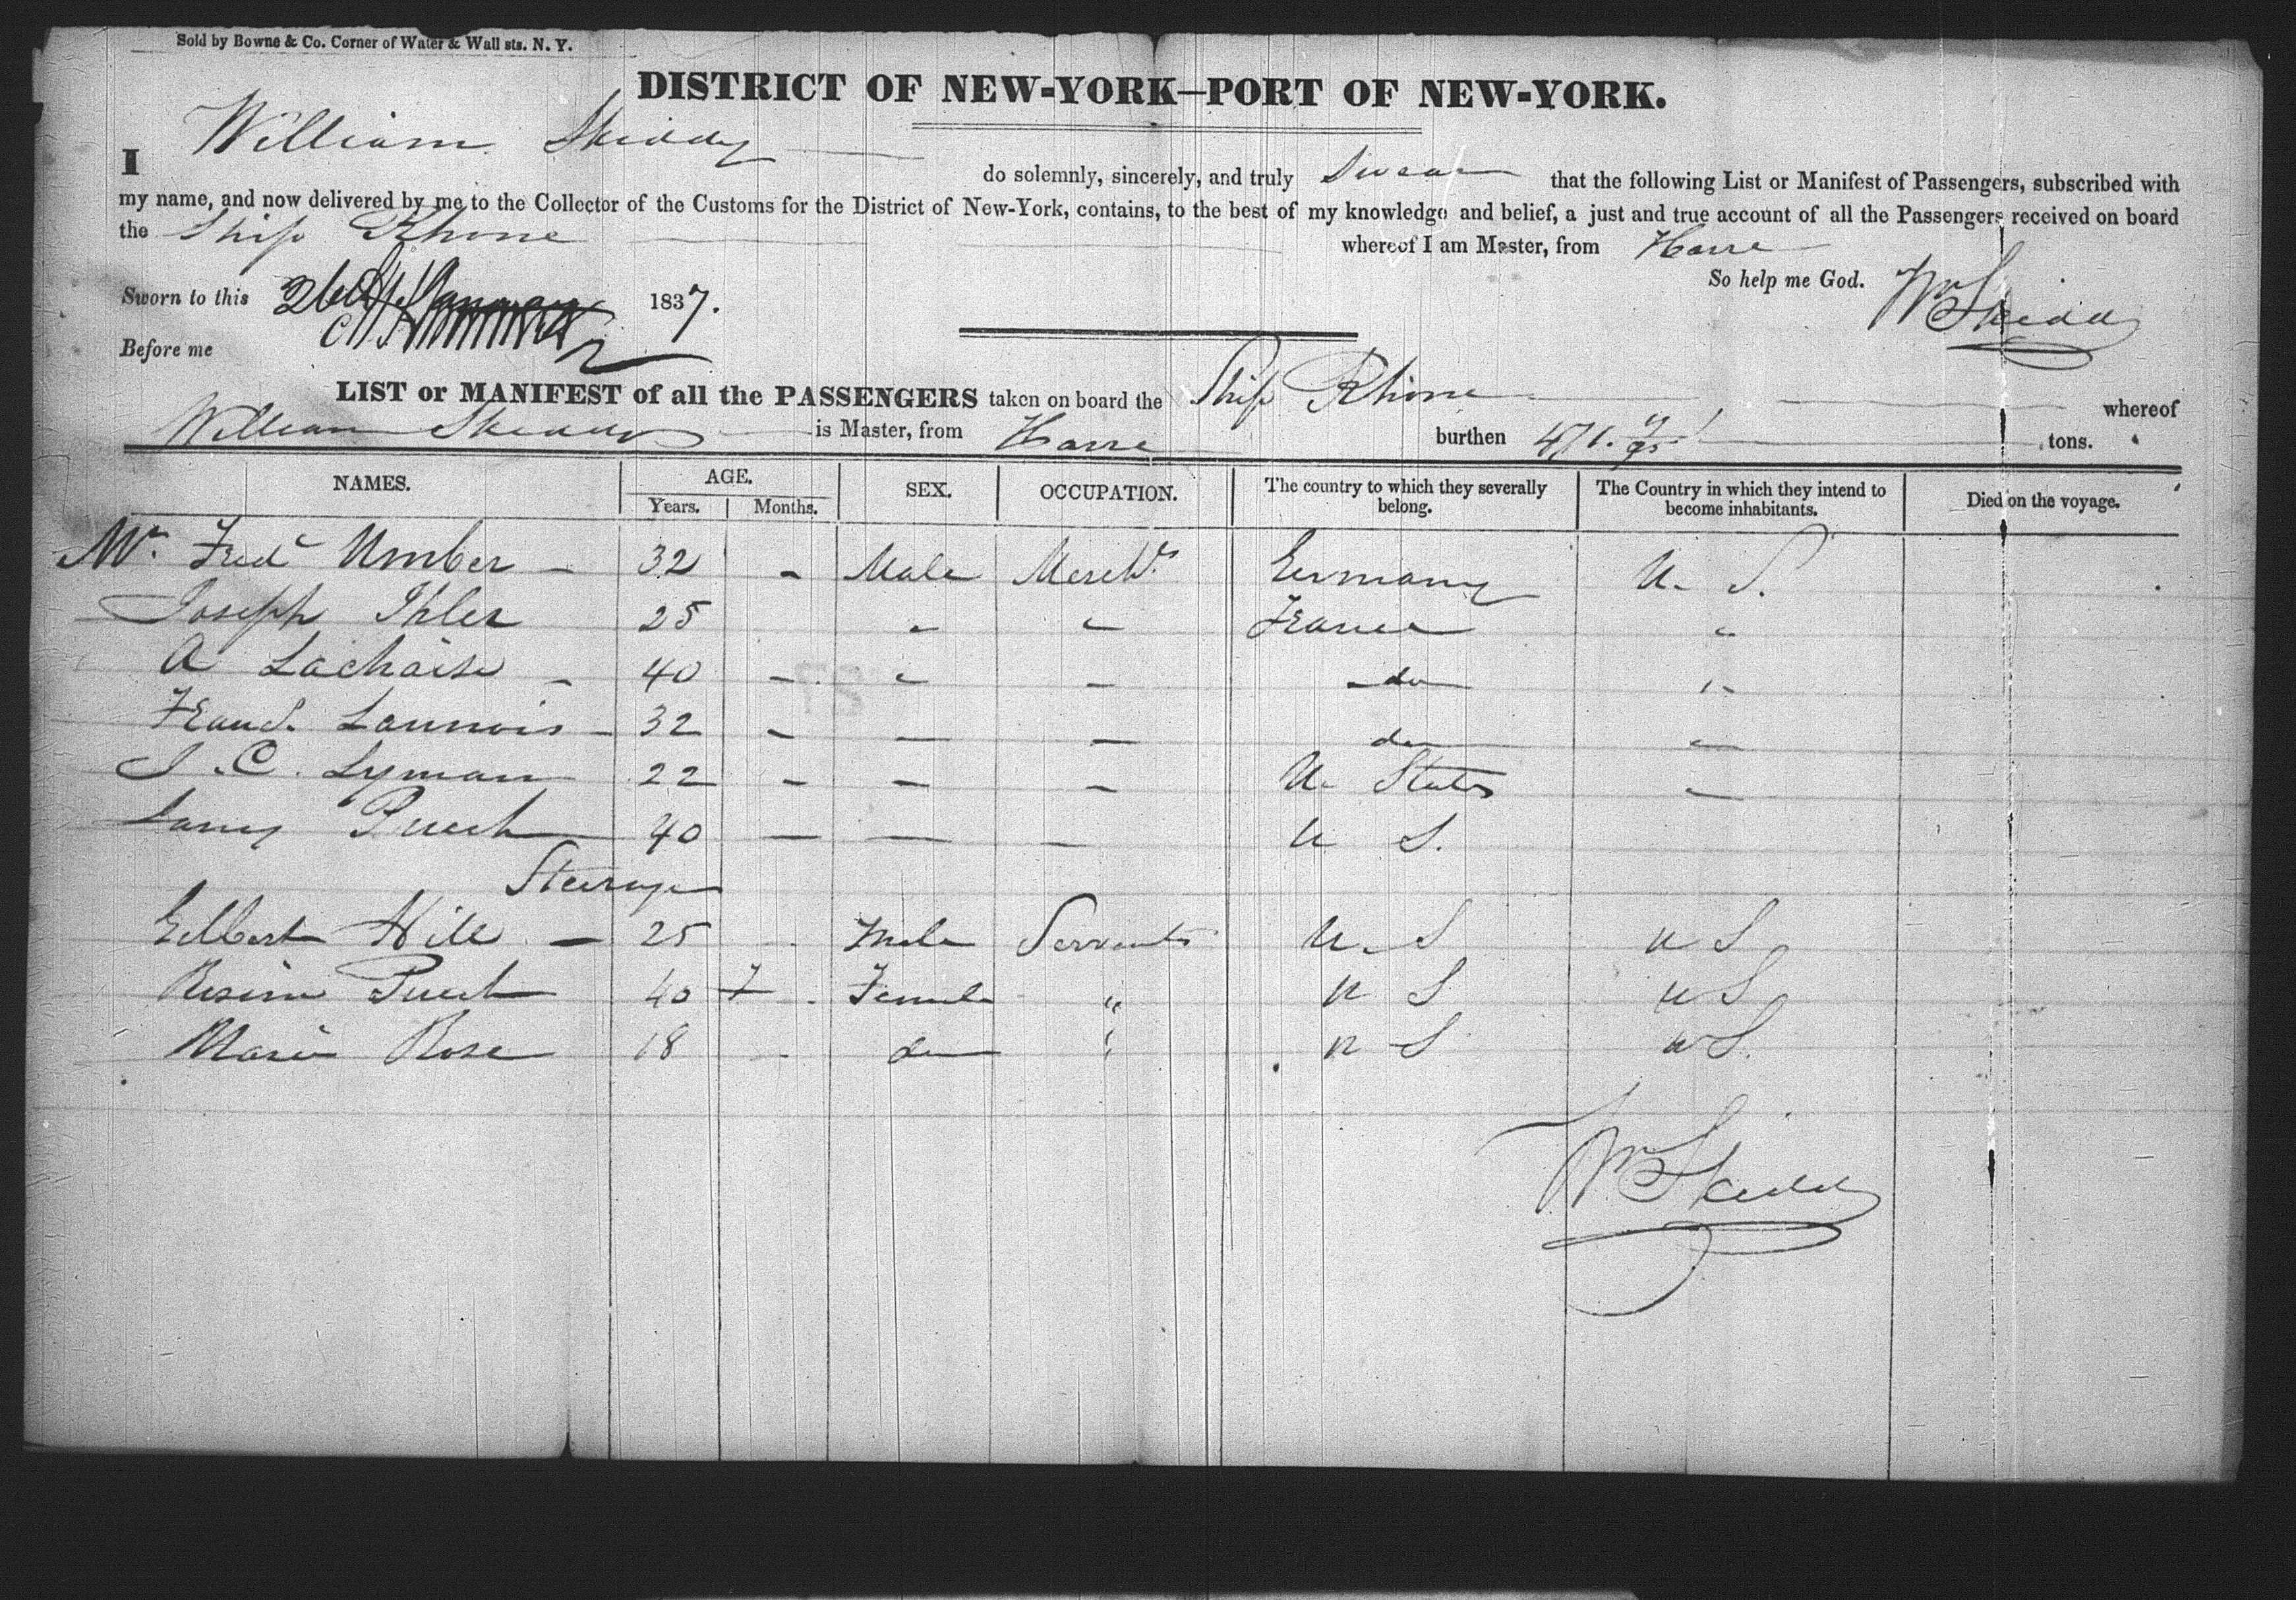 Sold by Bowne & Co. Corner of Water & Wall sts. N. Y.
DISTRICT OF NEW-YORK—PORT OF NEW-YORK.
I William Skiddy do solemnly, sincerely, and truly Swear that the following List or Manifest of Passengers, subscribed with
my name, and now delivered by me to the Collector of the Customs for the District of New-York, contains, to the best of my knowledge and belief, a just and true account of all the Passengers received on board
the Ship Rhone whereof I am Master, from Havre
So help me God. Wm Skiddy
Sworn to this 26th January 1837.
Before me
LIST or MANIFEST of all the PASSENGERS taken on board the Ship Rhone whereof
William Skiddy is Master, from Havre burthen 471. tons.
NAMES. AGE. SEX. OCCUPATION. The country to which they severally belong. The Country in which they intend to become inhabitants. Died on the voyage.
Years. Months.
Mr. Fredk Umber - 32 - Male Mercht. Germany U. S.
Joseph Ihler 25 " " France "
A Lachaise - 40 - " - do "
Francs. Launois - 32 - - - do "
J. C. Lyman 22 - - - U. States "
Puech 40 - - - U S.
Steerage
Gilbert Hill - 25 Male Servants U. S U S
Puech 40 Female " U S U S
Marie Rose 18 - do " U S U S.
Wm Skiddy